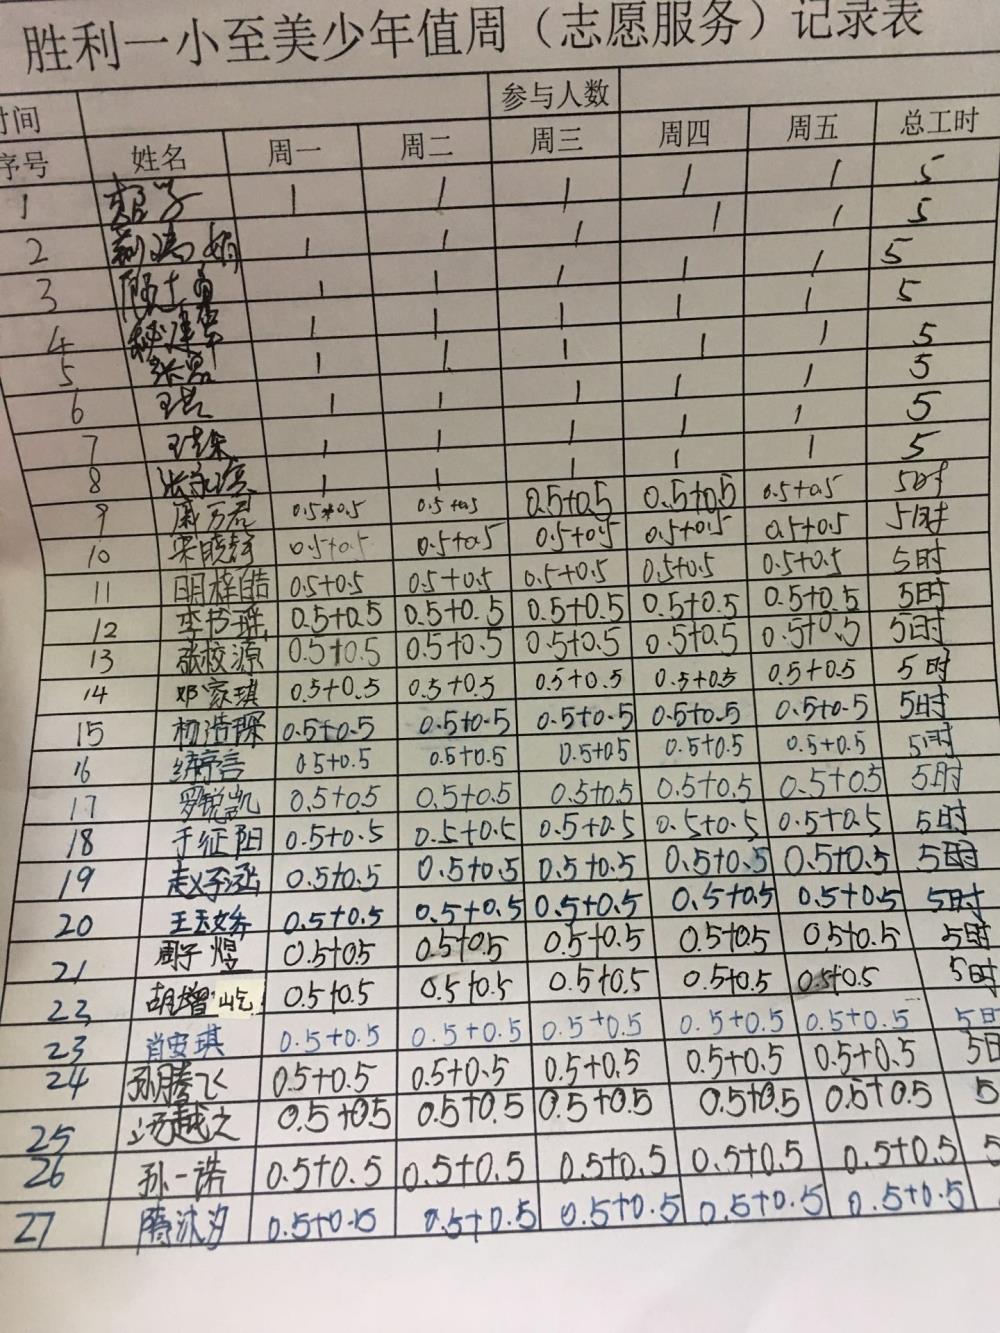 胜利一小至美少年值周（志愿服务）记录表
时间 参与人数
序号 姓名 周一 周二 周三 周四 周五 总工时
1 1 1 1 1 1 5
2 1 1 1 1 1 5
3 1 1 1 1 1 5
4 1 1 1 1 1 5
5 张磊 1 1 1 1 1 5
6 1 1 1 1 1 5
7 1 1 1 1 1 5
8 张永 1 1 1 1 1 5
9 0.5+0.5 0.5+0.5 0.5+0.5 0.5+0.5 0.5+0.5 5时
10 宋晓静 0.5+0.5 0.5+0.5 0.5+0.5 0.5+0.5 0.5+0.5 5时
11 明梓皓 0.5+0.5 0.5+0.5 0.5+0.5 0.5+0.5 0.5+0.5 5时
12 李书瑶 0.5+0.5 0.5+0.5 0.5+0.5 0.5+0.5 0.5+0.5 5时
13 张校源 0.5+0.5 0.5+0.5 0.5+0.5 0.5+0.5 0.5+0.5 5时
14 邓家琪 0.5+0.5 0.5+0.5 0.5+0.5 0.5+0.5 0.5+0.5 5时
15 杨浩琛 0.5+0.5 0.5+0.5 0.5+0.5 0.5+0.5 0.5+0.5 5时
16 0.5+0.5 0.5+0.5 0.5+0.5 0.5+0.5 0.5+0.5 5时
17 罗锐凯 0.5+0.5 0.5+0.5 0.5+0.5 0.5+0.5 0.5+0.5 5时
18 于征阳 0.5+0.5 0.5+0.5 0.5+0.5 0.5+0.5 0.5+0.5 5时
19 赵子涵 0.5+0.5 0.5+0.5 0.5+0.5 0.5+0.5 0.5+0.5 5时
20 0.5+0.5 0.5+0.5 0.5+0.5 0.5+0.5 0.5+0.5 5时
21 周子煜 0.5+0.5 0.5+0.5 0.5+0.5 0.5+0.5 0.5+0.5 5时
23 胡增屹 0.5+0.5 0.5+0.5 0.5+0.5 0.5+0.5 0.5+0.5 5时
23 肖安琪 0.5+0.5 0.5+0.5 0.5+0.5 0.5+0.5 0.5+0.5 5日
24 孙腾飞 0.5+0.5 0.5+0.5 0.5+0.5 0.5+0.5 0.5+0.5 5日
25 0.5+0.5 0.5+0.5 0.5+0.5 0.5+0.5 0.5+0.5 5
26 孙一诺 0.5+0.5 0.5+0.5 0.5+0.5 0.5+0.5 0.5+0.5 5
27 隋沐汐 0.5+0.5 0.5+0.5 0.5+0.5 0.5+0.5 0.5+0.5